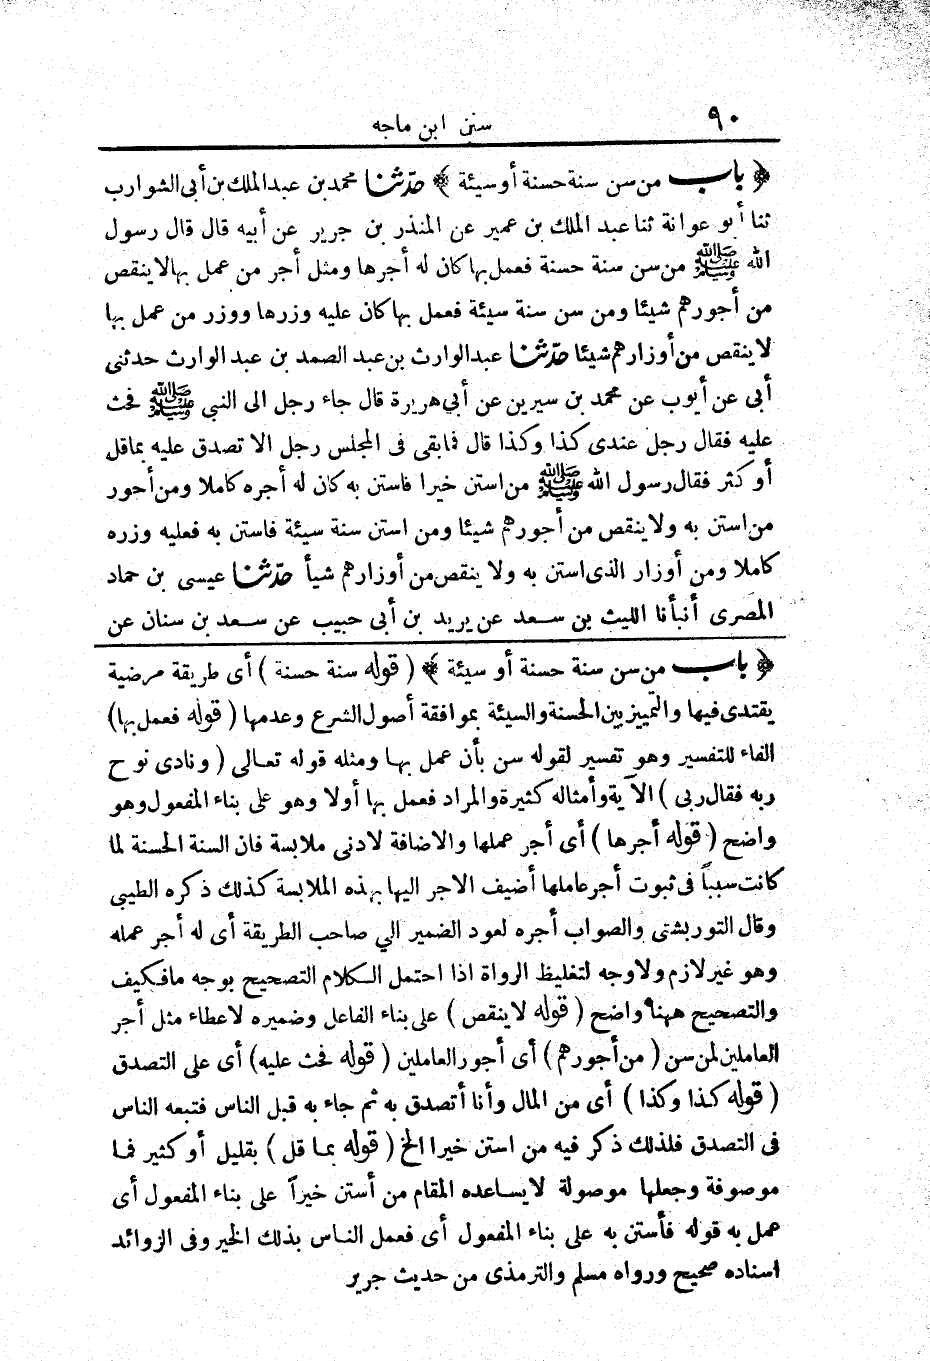 ٩٠
سنن ابن ماجه
﴿ باب من سن سنة حسنة أو سيئة ﴾ حدّثنا محمد بن عبد الملك بن أبى الشوارب
ثنا أبو عوانة ثنا عبد الملك بن عمير عن المنذر بن جرير عن أبيه قال قال رسول
الله ﷺ من سن سنة حسنة فعمل بها كان له أجرها ومثل أجر من عمل بها لا ينقص
من أجورهم شيئا ومن سن سنة سيئة فعمل بها كان عليه وزرها ووزر من عمل بها
لا ينقص من أوزارهم شيئا حدّثنا عبد الوارث بن عبد الصمد بن عبد الوارث حدثنى
أبى عن أيوب عن محمد بن سيرين عن أبى هريرة قال جاء رجل الى النبى ﷺ فحث
عليه فقال رجل عندى كذا وكذا قال فما بقى فى المجلس رجل الا تصدق عليه بما قل
أو كثر فقال رسول الله ﷺ من استن خيرا فاستن به كان له أجره كاملا ومن أجور
من استن به ولا ينقص من أجورهم شيئا ومن استن سنة سيئة فاستن به فعليه وزره
كاملا ومن أوزار الذى استن به ولا ينقص من أوزارهم شيأ حدّثنا عيسى بن حماد
المصرى أنبأنا الليث بن سعد عن يريد بن أبى حبيب عن سعد بن سنان عن
﴿ باب من سن سنة حسنة أو سيئة ﴾ ( قوله سنة حسنة ) أى طريقة مرضية
يقتدى فيها والتمييز بين الحسنة والسيئة بموافقة أصول الشرع وعدمها ( قوله فعمل بها )
الفاء للتفسير وهو تفسير لقوله سن بأن عمل بها ومثله قوله تعالى ( ونادى نوح
ربه فقال ربى ) الآية وأمثاله كثيرة والمراد فعمل بها أولا وهو على بناء المفعول وهو
واضح ( قوله أجرها ) أى أجر عملها والاضافة لادنى ملابسة فان السنة الحسنة لما
كانت سبباً فى ثبوت أجر عاملها أضيف الاجر اليها بهذه الملابسة كذلك ذكره الطيبى
وقال التوربشتى والصواب أجره لعود الضمير الي صاحب الطريقة أى له أجر عمله
وهو غير لازم ولا وجه لتغليظ الرواة اذا احتمل الكلام التصحيح بوجه ما فكيف
والتصحيح ههنا واضح ( قوله لا ينقص ) على بناء الفاعل وضميره لاعطاء مثل أجر
العاملين لمن سن ( من أجورهم ) أى أجور العاملين ( قوله فحث عليه ) أى على التصدق
( قوله كذا وكذا ) أى من المال وأنا أتصدق به ثم جاء به قبل الناس فتبعه الناس
فى التصدق فلذلك ذكر فيه من استن خيرا الخ ( قوله بما قل ) بقليل أو كثير فما
موصوفة وجعلها موصولة لا يساعده المقام من أستن خيراً على بناء المفعول أى
عمل به قوله فأستن به على بناء المفعول أى فعمل الناس بذلك الخير وفى الزوائد
اسناده صحيح ورواه مسلم والترمذى من حديث جرير